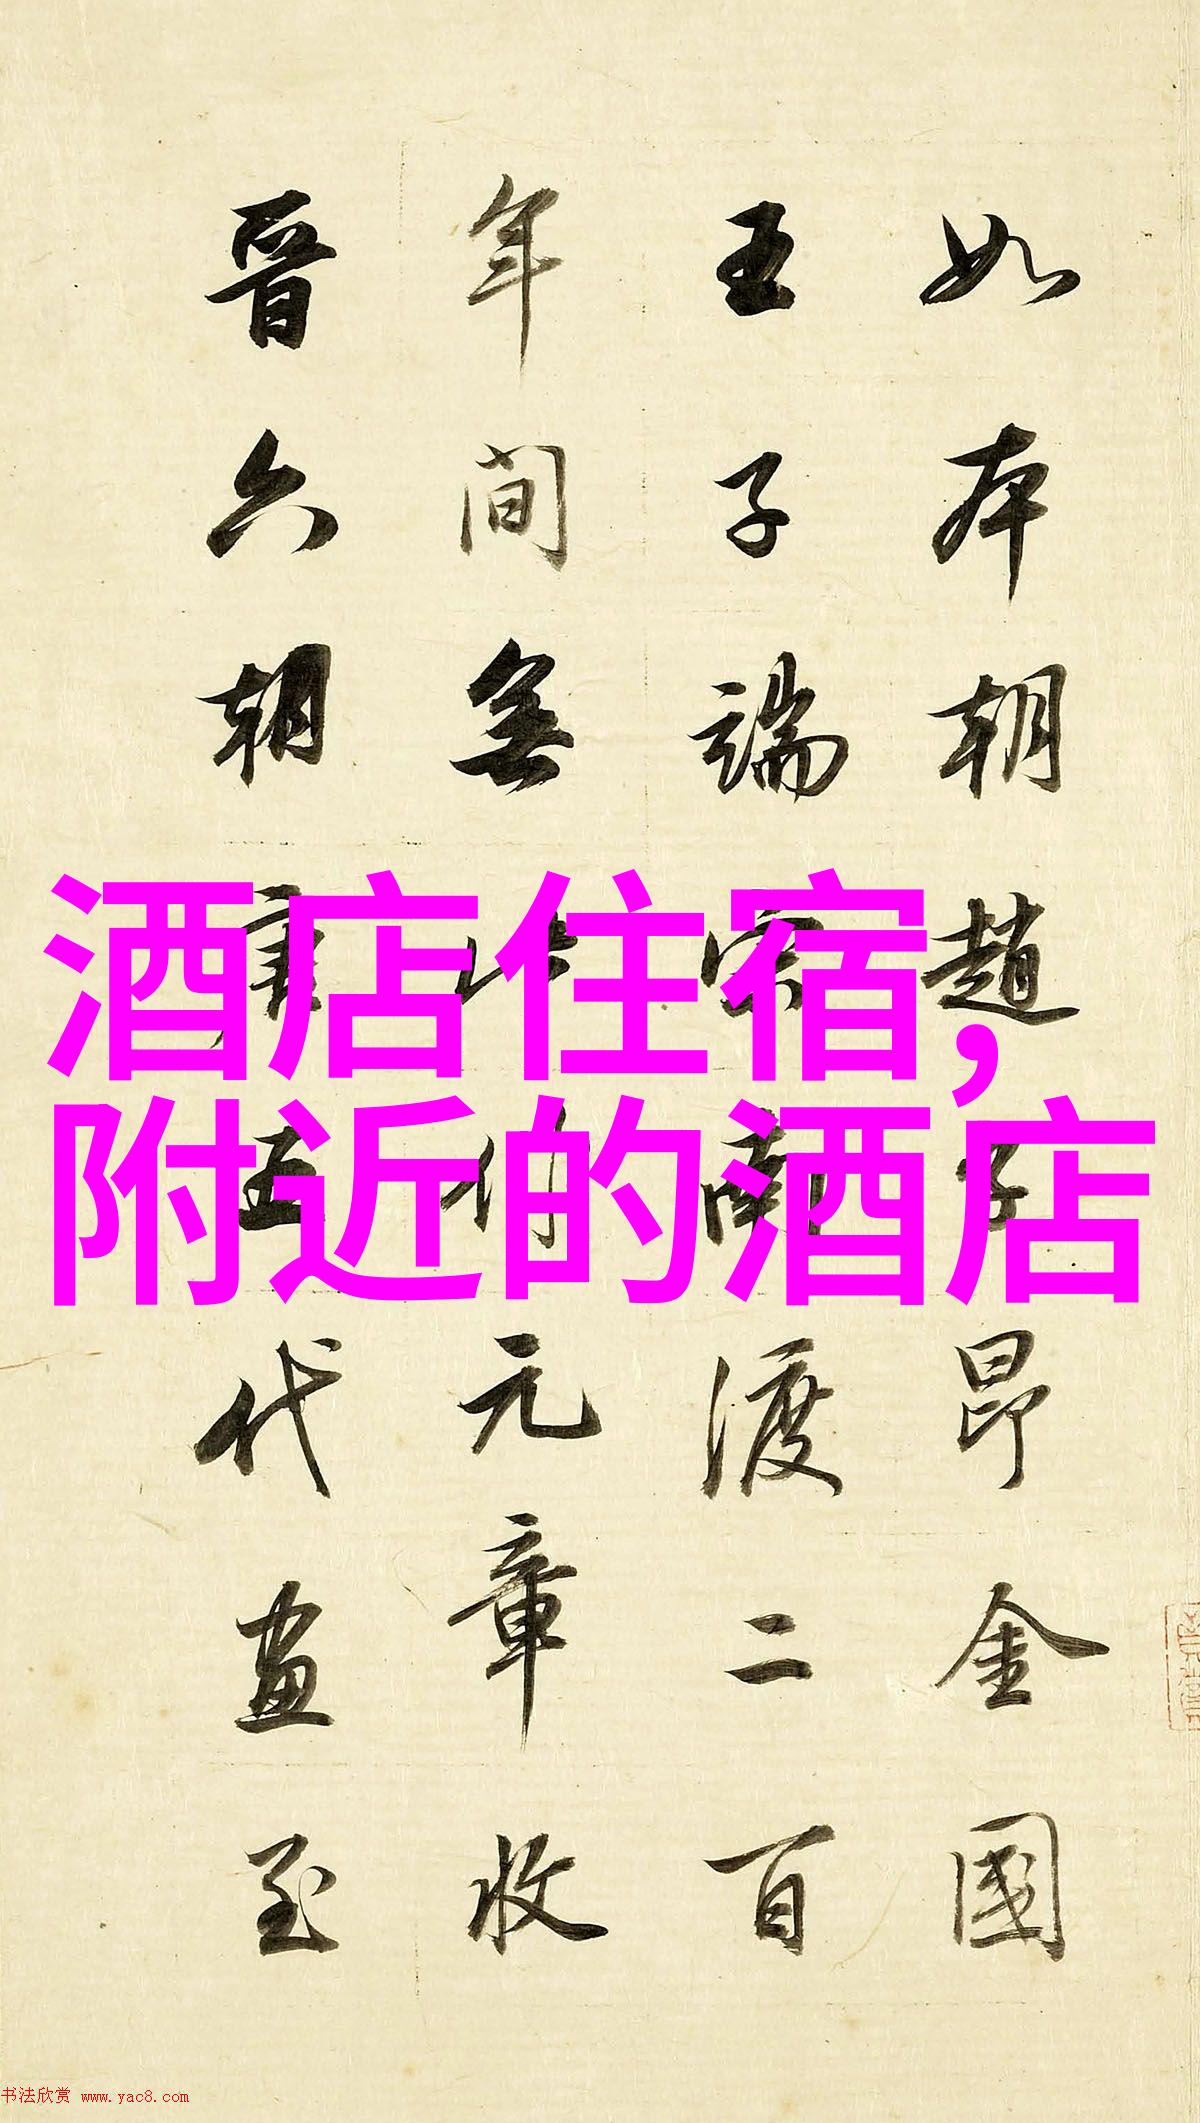 如本朝趙子昂金國
王子端宋南渡二百
年間無此作元章收
晉六朝唐五代畫至
酒店住宿,
附近的酒店
书法欣赏 www.yac8.com